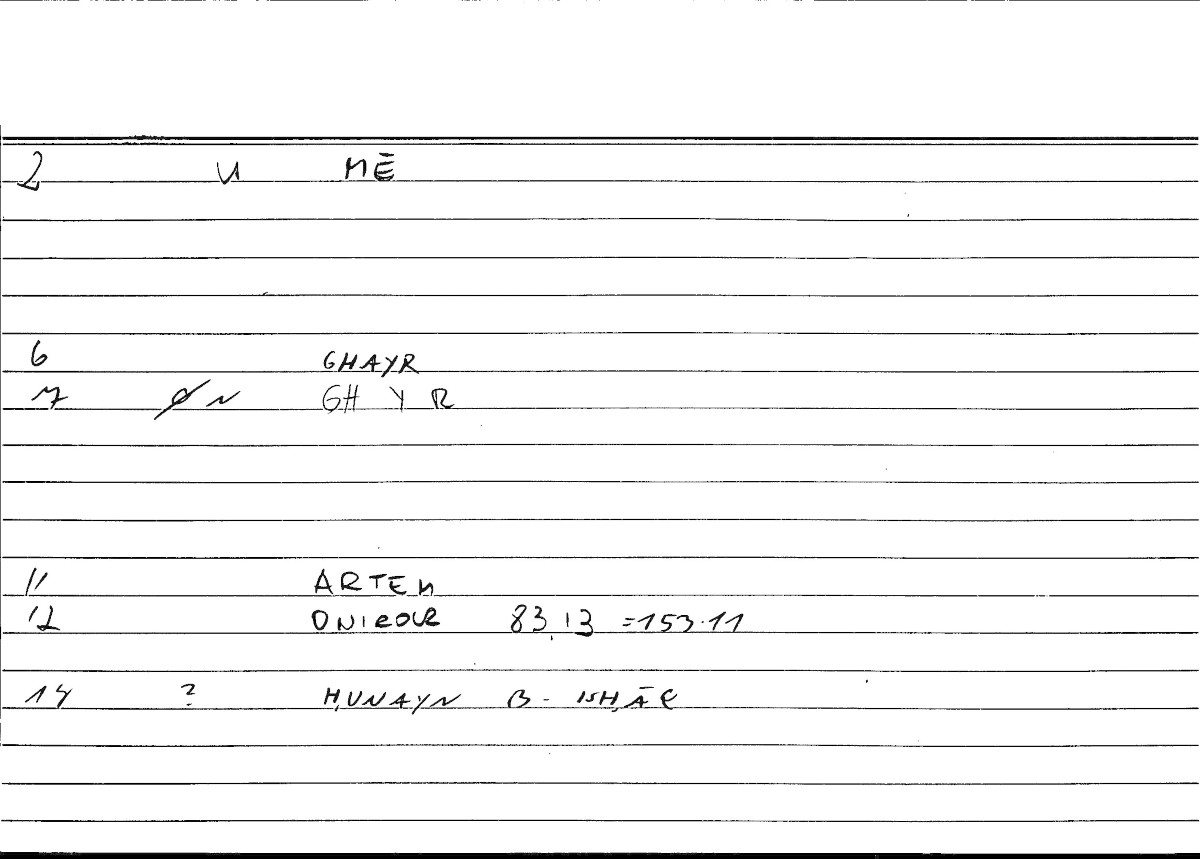 2 U MĒ
6 GHAYR
7 N GH Y R
11 ARTEM
12 ONIROCR 83,13 =153.11
14 ? ḤUNAYN B- ISḤĀQ